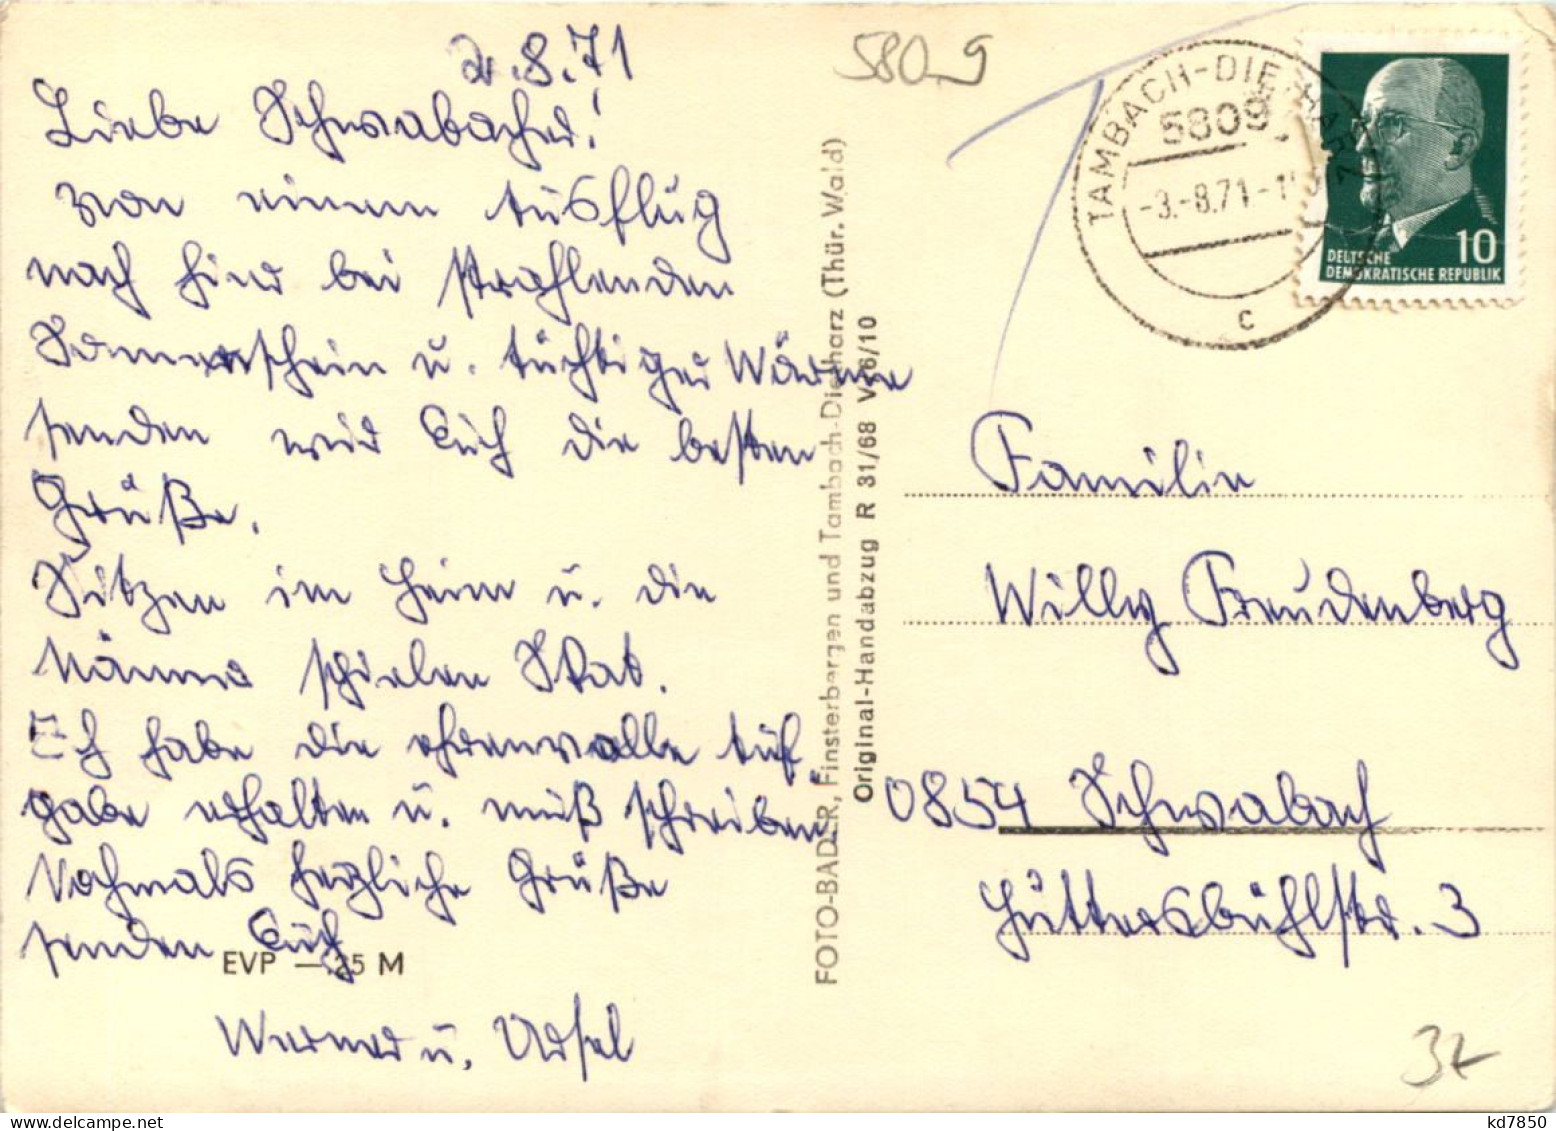 2.8.71
Liebe Schwabacher!
Von einem Ausflug
nach hier bei strahlenden
Sonnenschein u. tüchtiger Wärme
senden wir Euch die besten
Grüße.
Sitzen im Heim u. die
Männer spielen Skat.
Ich habe die ehrenvolle Auf-
gabe erhalten u. muß schreiben
Nochmals herzliche Grüße
senden Euch
EVP —25 M
Werner u. Ursel
FOTO-BADER, Finsterbergen und Tambach-Dietharz (Thür. Wald)
Original-Handabzug R 31/68 V 6/10
5809
T
TAMBACH-DIETHARZ 1
5809
-3.-8.71-1
c
10
DEUTSCHE
DEMOKRATISCHE REPUBLIK
Familie
Willy Freudenberg
0854 Schwabach
Hüttersbühlstr. 3
kd7850